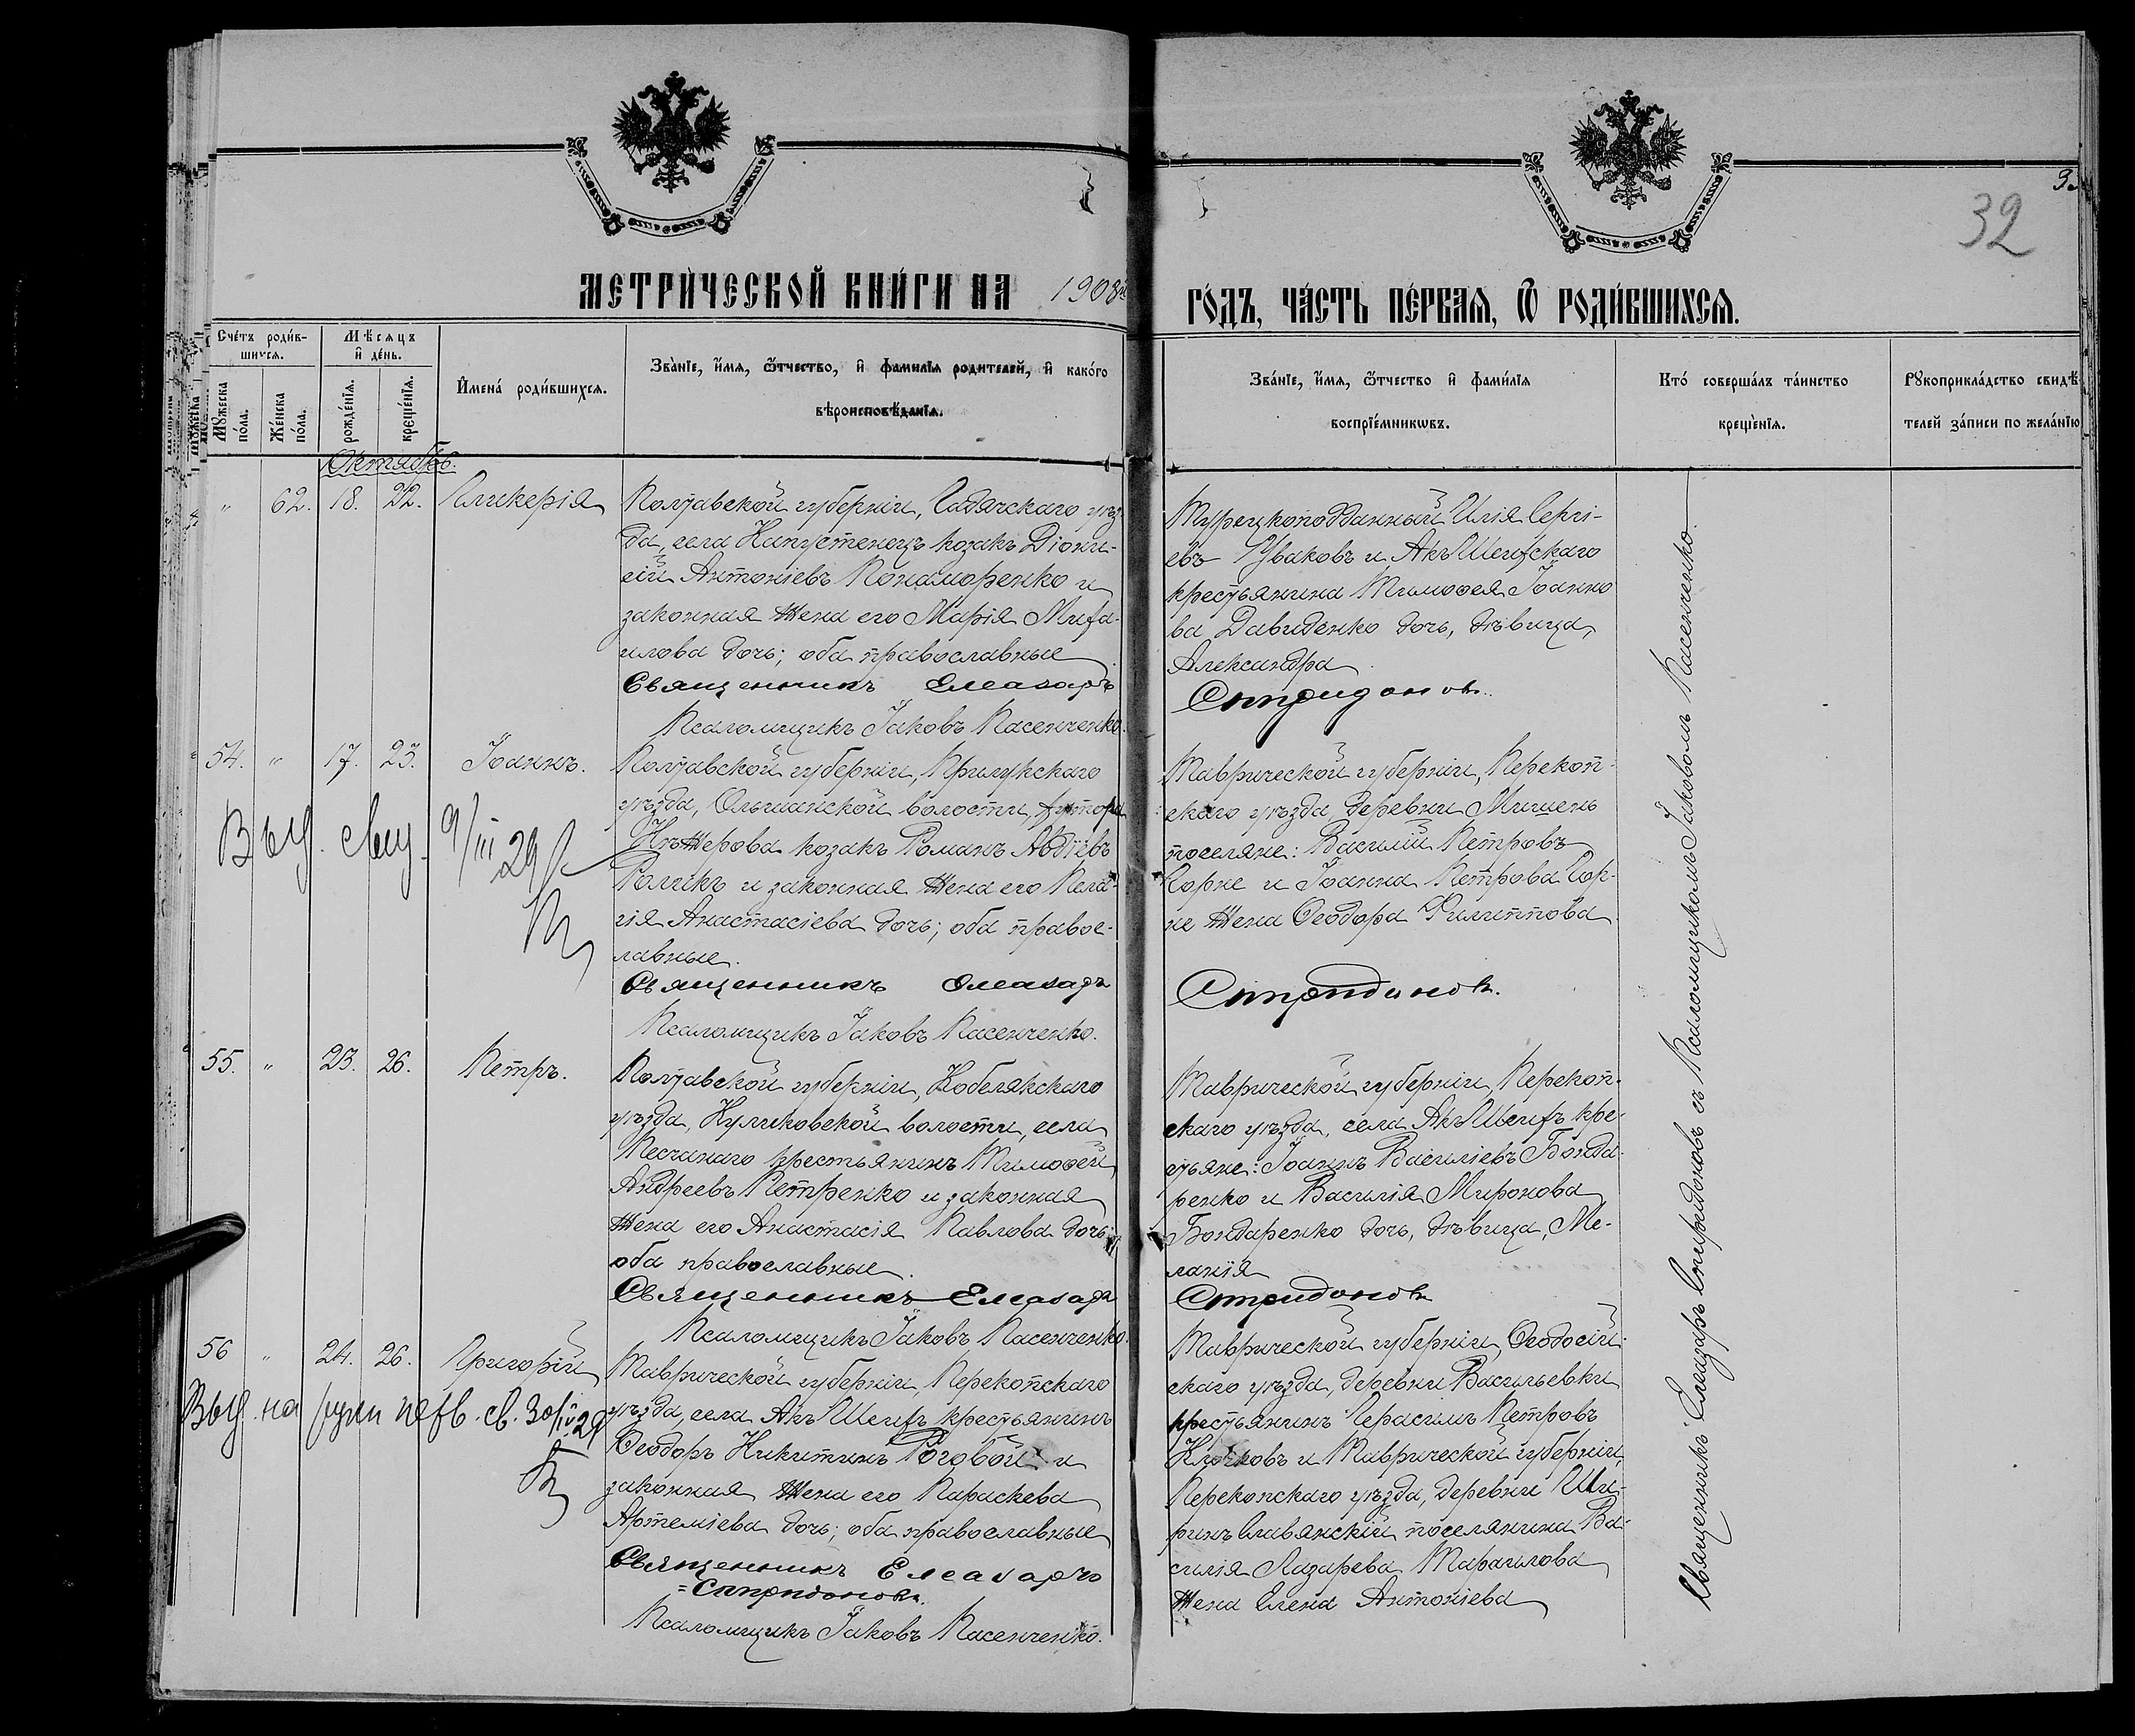 МЕТРИЧЕСКОЙ КНИГИ НА 1908й
ГОДЪ, ЧАСТЬ ПЕРВАЯ, Ѿ РОДИВШИХСЯ.
3
32
Счетъ родив-
шихся.
Мужеска
пола.
Женска
пола.
Мѣсяцъ
и день.
рожденія.
крещенія.
Имена родившихся.
Званіе, имя, ѿтчество, и фамилія родителей, и какого
вѣроисповѣданія.
Званіе, имя, ѿтчество и фамилія
воспріемниковъ.
Кто совершалъ таинство
крещенія.
Рукоприкладство свидѣ-
телей записи по желанію
Октябрь.
" 62. 18. 22. Гликерія
Полтавской губерніи, Гадячскаго уѣз-
да, села Капустенецъ козакъ Діони-
сій Антоніевъ Пономаренко и
законная жена его Марія Миха-
илова дочь; оба православные.
Священникъ Елеазаръ
Псаломщикъ Іаковъ Пасенченко.
Турецкоподданный Илія Сергі-
евъ и Акъ Шеихскаго
крестьянина Тимофея Іоанно
ва Давиденко дочь, дѣвица,
Александра.
Спиридоновъ.
54. " 17. 23. Іоаннъ.
Выд. свид. 9/III 29
Полтавской губерніи, Прилукскаго
уѣзда, Ольшанской волости, хутора
козакъ Романъ Авдіевъ
Роликъ и законная жена его Пела-
гія Анастасіева дочь; оба правос-
лавные.
Священникъ Елеазаръ
Псаломщикъ Іаковъ Пасенченко.
Таврической губерніи, Перекоп-
скаго уѣзда, деревни Мишень
поселяне: Василій Петровъ
Горпе и Іоанна Петрова Гор-
пе жена Феодора Филиппова
Спиридоновъ.
55. " 23. 26. Петръ.
Полтавской губерніи, Кобелякскаго
уѣзда, Куликовской волости, села
Песчанаго крестьянинъ Тимофей
Андреевъ Петренко и законная
жена его Анастасія Павлова дочь;
оба православные.
Священникъ Елеазаръ
Псаломщикъ Іаковъ Пасенченко.
Таврической губерніи, Перекоп-
скаго уѣзда, села Акъ Шеихъ кре-
стьяне: Іоаннъ Василіевъ Бонда-
ренко и Василія Миронова
Бондаренко дочь, дѣвица, Ме-
ланія
Спиридоновъ
56 " 24. 26. Григорій
Выд. на руки св. 30/IV 29
Таврической губерніи, Перекопскаго
уѣзда, села Акъ Шеихъ крестьянинъ
Феодоръ Никитинъ Роговой и
законная жена его Параскева
Артеміева дочь; оба православные
Священникъ Елеазаръ
=Спиридоновъ.
Псаломщикъ Іаковъ Пасенченко.
Таврической губерніи, Феодосій-
скаго уѣзда, деревни Васильевки
крестьянинъ Герасимъ Петровъ
Клочковъ и Таврической губерніи,
Перекопскаго уѣзда, деревни Ши-
ринъ Славянскій поселянина Ва-
силія Лазарева
жена Елена Антоніева
Священникъ Елеазаръ Спиридоновъ съ Псаломщикомъ Іаковомъ Пасенченко.